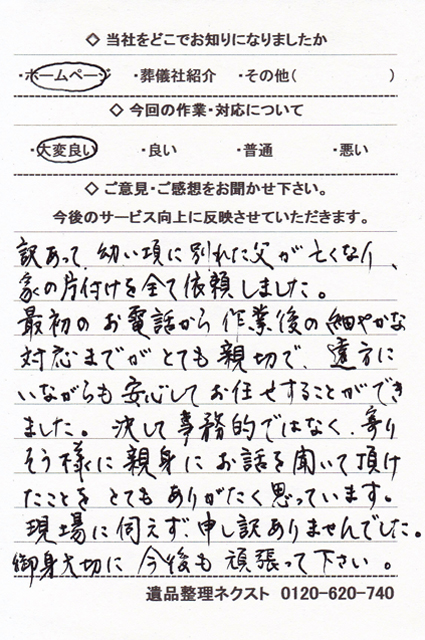 ◇ 当社をどこでお知りになりましたか
・ホームページ ・葬儀社紹介 ・その他( )
◇ 今回の作業・対応について
・大変良い ・良い ・普通 ・悪い
◇ ご意見・ご感想をお聞かせ下さい。
今後のサービス向上に反映させていただきます。
訳あって、幼い頃に別れた父が亡くなり、
家の片付けを全て依頼しました。
最初のお電話から作業後の細やかな
対応までがとても親切で、遠方に
いながらも安心してお任せすることができ
ました。決して事務的ではなく、寄り
そう様に親身にお話を聞いて頂け
たことをとてもありがたく思っています。
現場に伺えず、申し訳ありませんでした。
御身大切に今後も頑張って下さい。
遺品整理ネクスト 0120-620-740